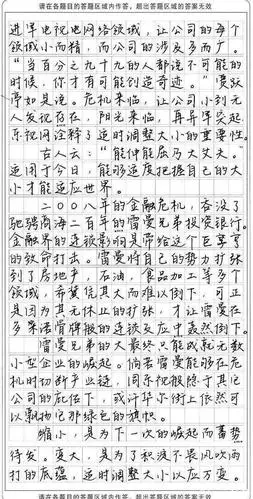 请在各题目的答题区域内作答，超出答题区域的答案无效
进军电视电网络领域，让公司的每个
领域小而精，而公司的涉及多而广。
“当百分之九十九的人都说不可能的
时候，你才有可能创造奇迹。”贾跃
亭如是说。危机来临，让公司小到无
人发现存在，阳光来临，再异军突起，
乐视网诠释了适时调整大小的重要性。
古人云：“能伸能屈乃大丈夫。”
适用于今日，能够适度把握自己的大
小才能适应世界。
二〇〇八年的金融危机，吞没了
驰骋商海二百年的雷曼兄弟投资银行。
金融界的连锁影响是带给这个巨享
的致命打击。雷曼将自己的势力扩张
到了房地产，石油，食品加工等多个
领域，希冀凭其大而难以倒下，可正
是因为其无休止的扩张，才让雷曼在
多米诺骨牌般的连锁反应中轰然倒下。
雷曼兄弟的大最终只能成就无数
小型企业的崛起。倘若雷曼能够在危
机时切断产业链，同乐视般隐于其它
公司的庇佑下，或许华尔街上依然可
以飘扬它那绿色的旗帜。
缩小，是为下一次的崛起而蓄势
待发。变大，是为了积淀不畏风吹雨
打的底蕴，适时调整大小以应万变。
请在各题目的答题区域内作答，超出答题区域的答案无效